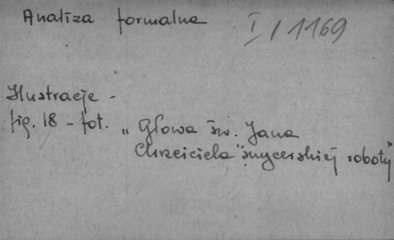 Analiza formalna I/1169
Ilustracje -
fig. 18 - fot. „Głowa św. Jana
Chrzciciela" snycerskiej roboty"